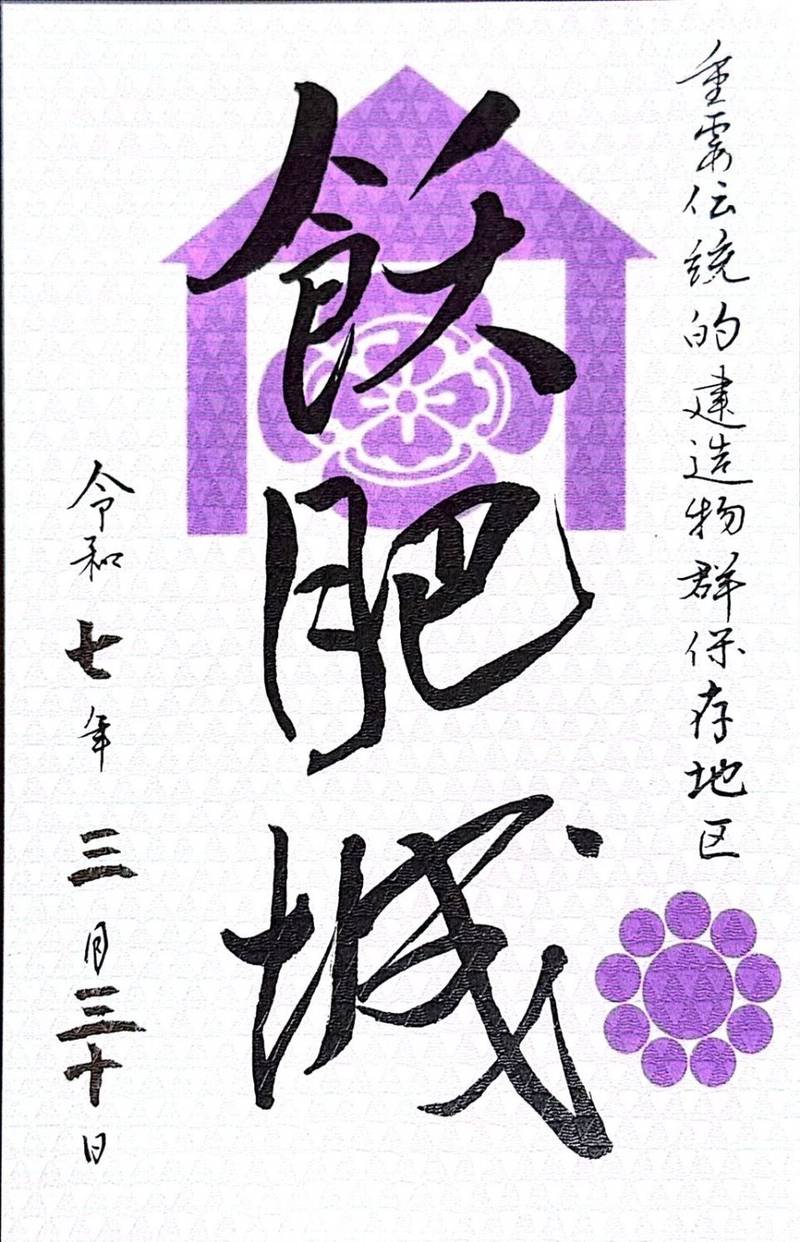 重要伝統的建造物群保存地区
飫肥城
令和七年三月三十日